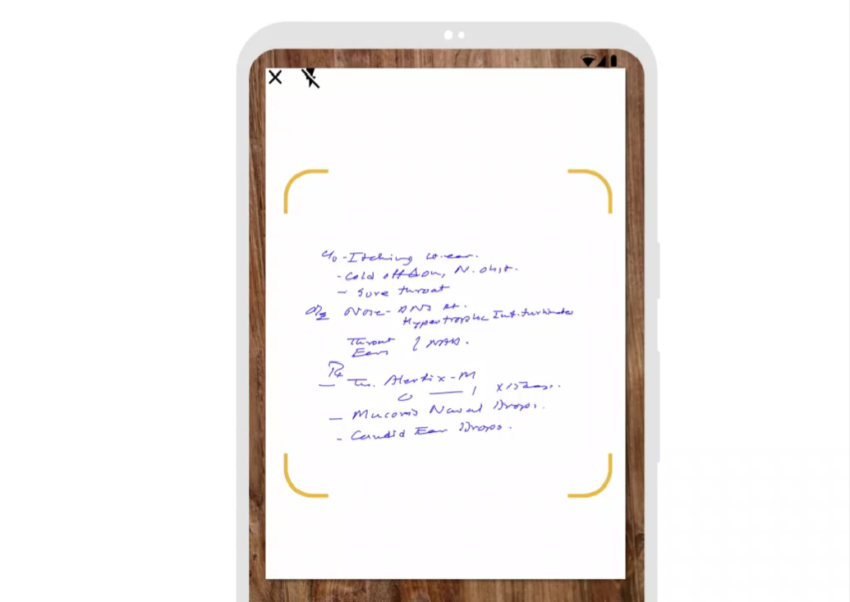 c/o - Itching Lt. ear.
- Cold off & on, N. obst.
- Sore throat
O/E Nose - DNS Rt.
Hypertrophic Inf. turbinates
Throat
Ears } NAD.
Rx
- Tab. Alertix-M
0 — 1 x 15 days.
- Nasal Drops.
- Candid Ear Drops.